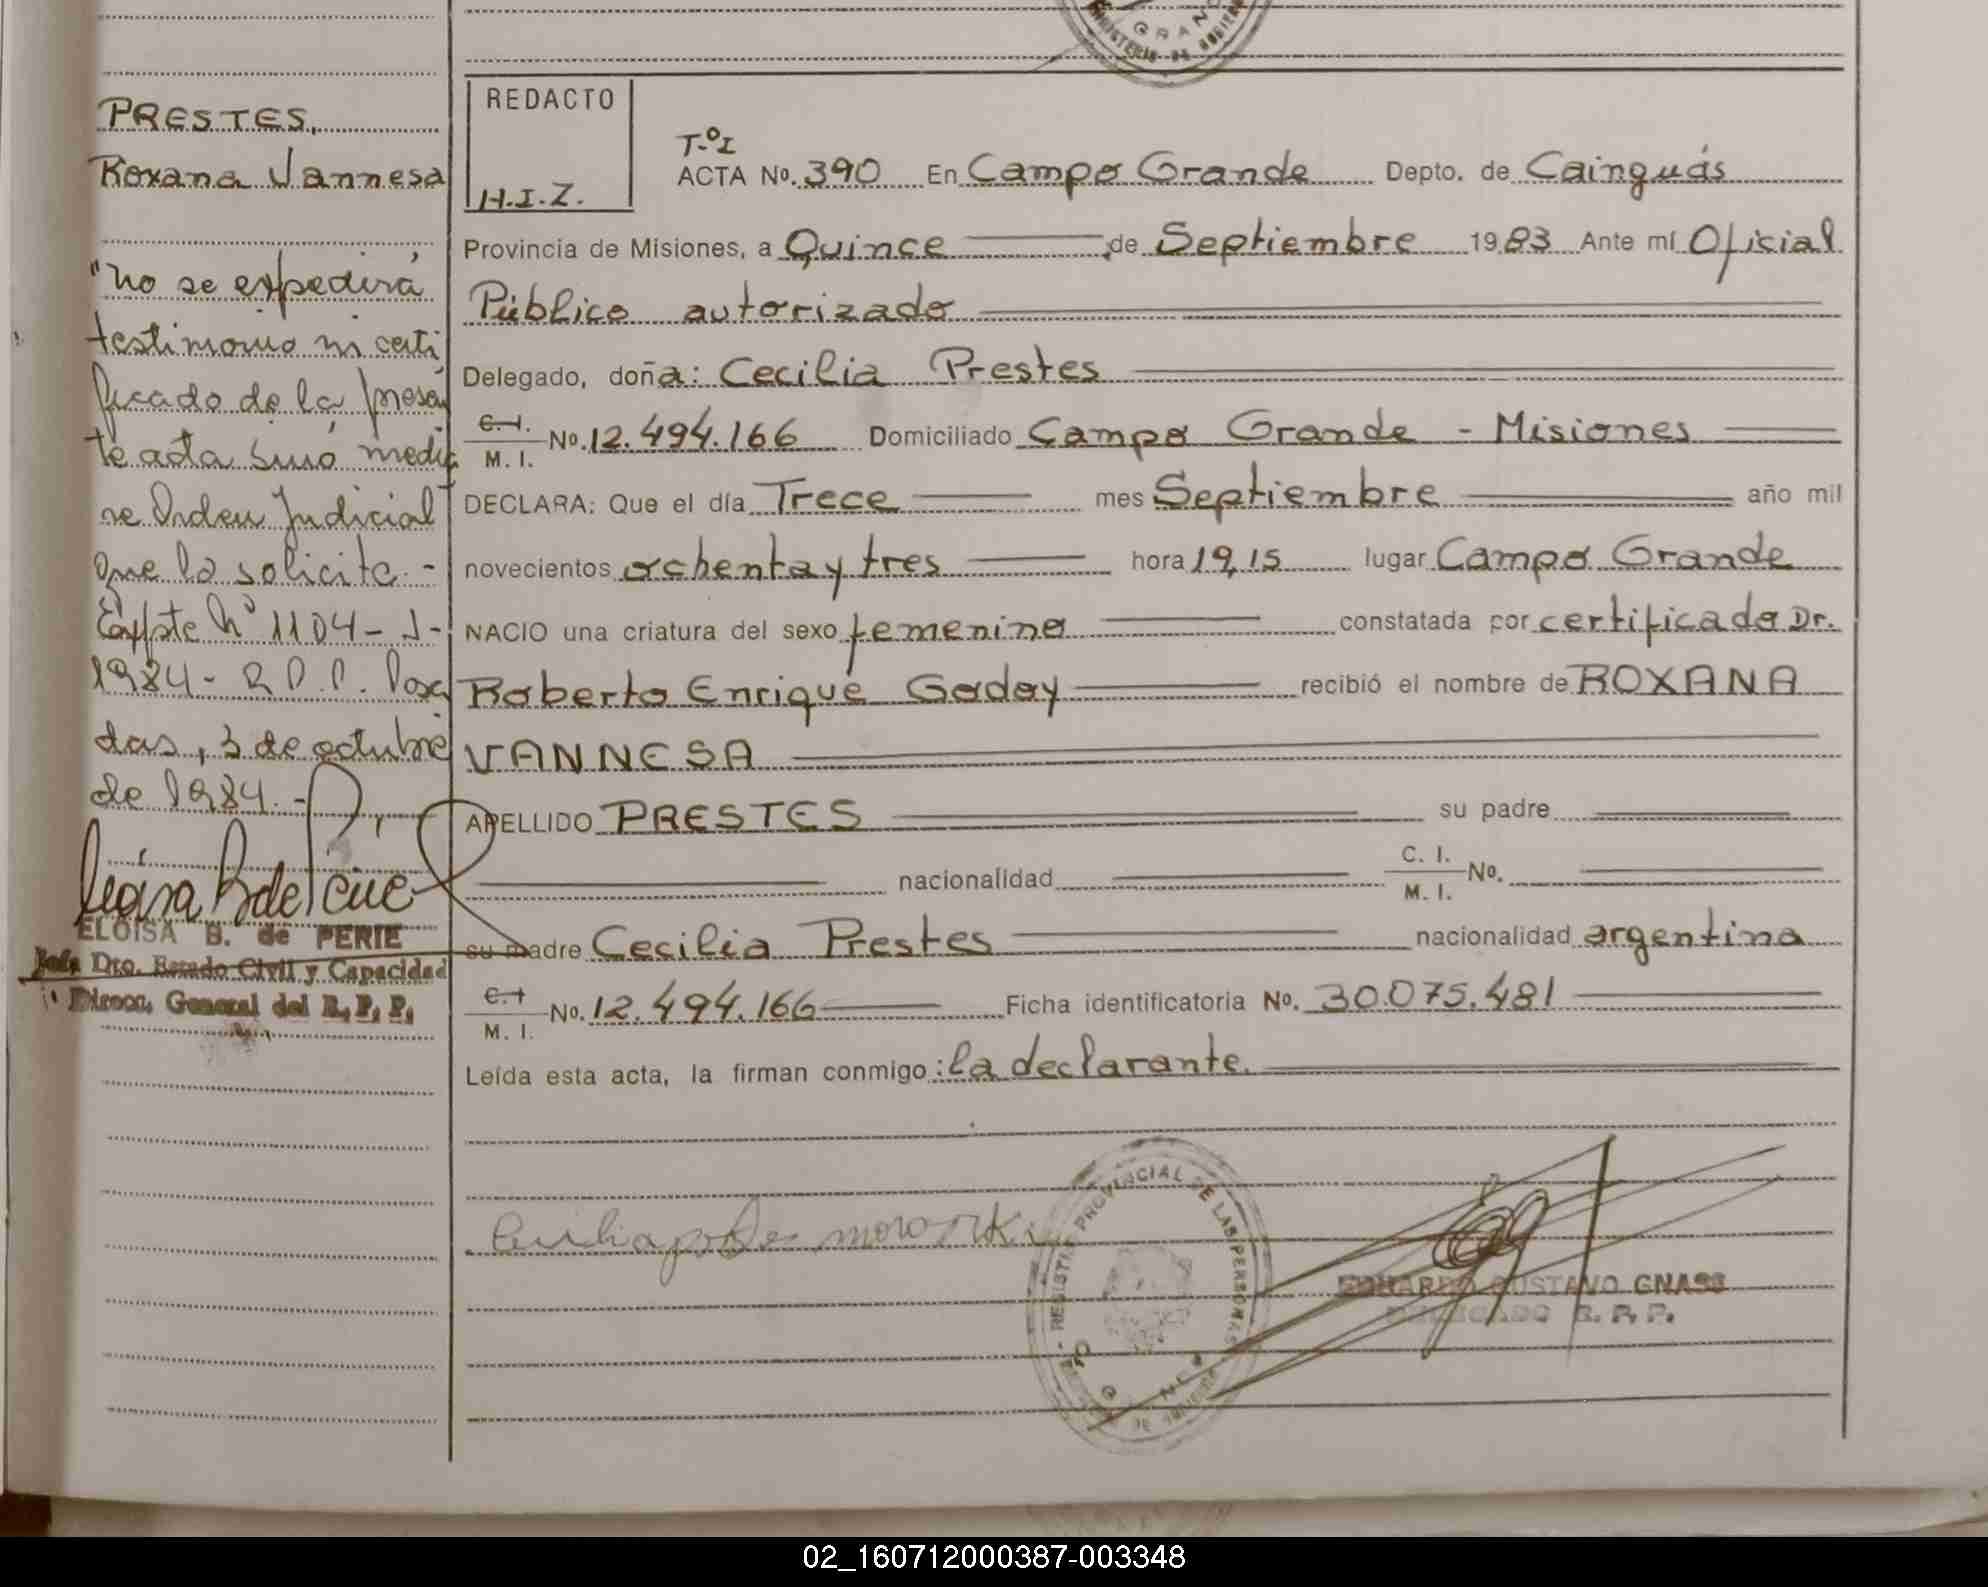 GRAN
MINISTERIO DE GOBIERN
PRESTES,
Roxana Vannesa
"No se expedirá
testimonio ni certi
ficado de la presen
te acta sino media
ne Orden Judicial"
que lo solicite.-
Expte Nº 1104-J-
1984- R.P.P. Posa
das, 3 de octubre
de 1984.-
ELOISA B. de PERIE
Jefa Dto. Estado Civil y Capacidad
Direcc. General del R. P. P.
REDACTO
H.I.Z.
T-º I
ACTA Nº. 390 En Campo Grande Depto. de Cainguás
Provincia de Misiones, a Quince de Septiembre 1983 Ante mí Oficial
Público autorizado
Delegado, doña: Cecilia Prestes
C. I.
M. I. Nº. 12.494.166 Domiciliado Campo Grande - Misiones
DECLARA: Que el día Trece mes Septiembre año mil
novecientos ochenta y tres hora 19,15 lugar Campo Grande
NACIO una criatura del sexo femenino constatada por certificado Dr.
Roberto Enrique Godoy recibió el nombre de ROXANA
VANNESA
APELLIDO PRESTES su padre
nacionalidad C. I.
M. I. Nº.
su madre Cecilia Prestes nacionalidad argentina
C. I.
M. I. Nº. 12.494.166 Ficha identificatoria Nº. 30.075.481
Leída esta acta, la firman conmigo: la declarante.
REGISTRO PROVINCIAL DE LAS PERSONAS
EDUARDO GUSTAVO GNASS
DELEGADO R. P. P.
02_160712000387-003348